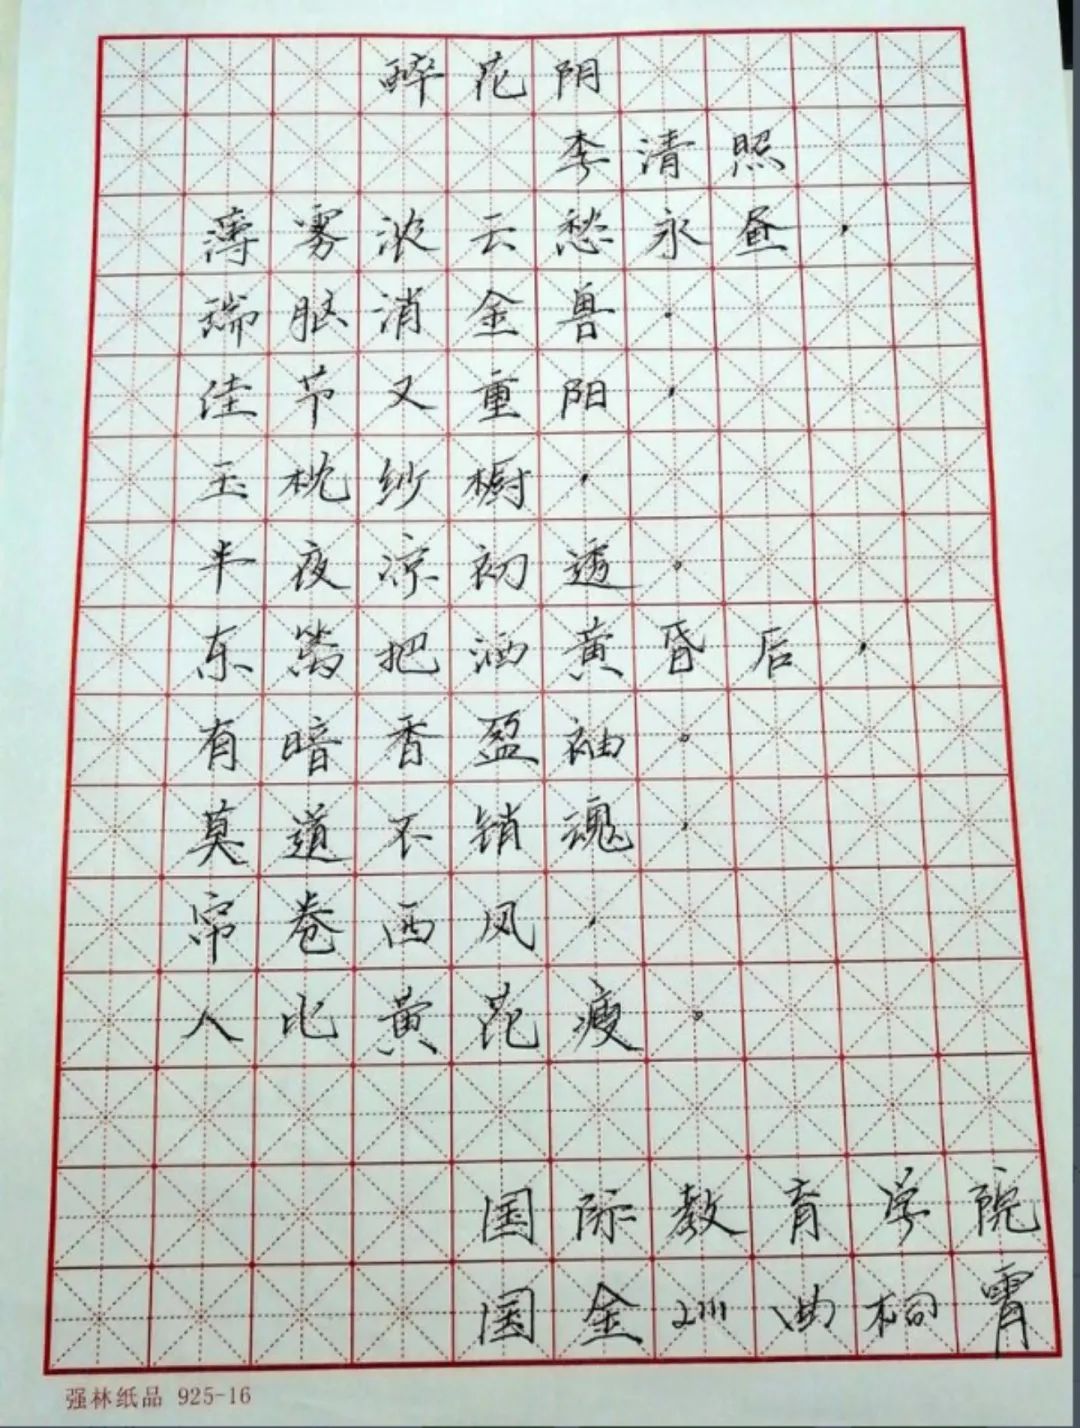 醉花阴
李清照
薄雾浓云愁永昼,
瑞脑消金兽.
佳节又重阳,
玉枕纱橱,
半夜凉初透。
东篱把酒黄昏后,
有暗香盈袖。
莫道不销魂,
帘卷西风,
人比黄花瘦。
国际教育学院
国金211曲桐霄
强林纸品 925-16